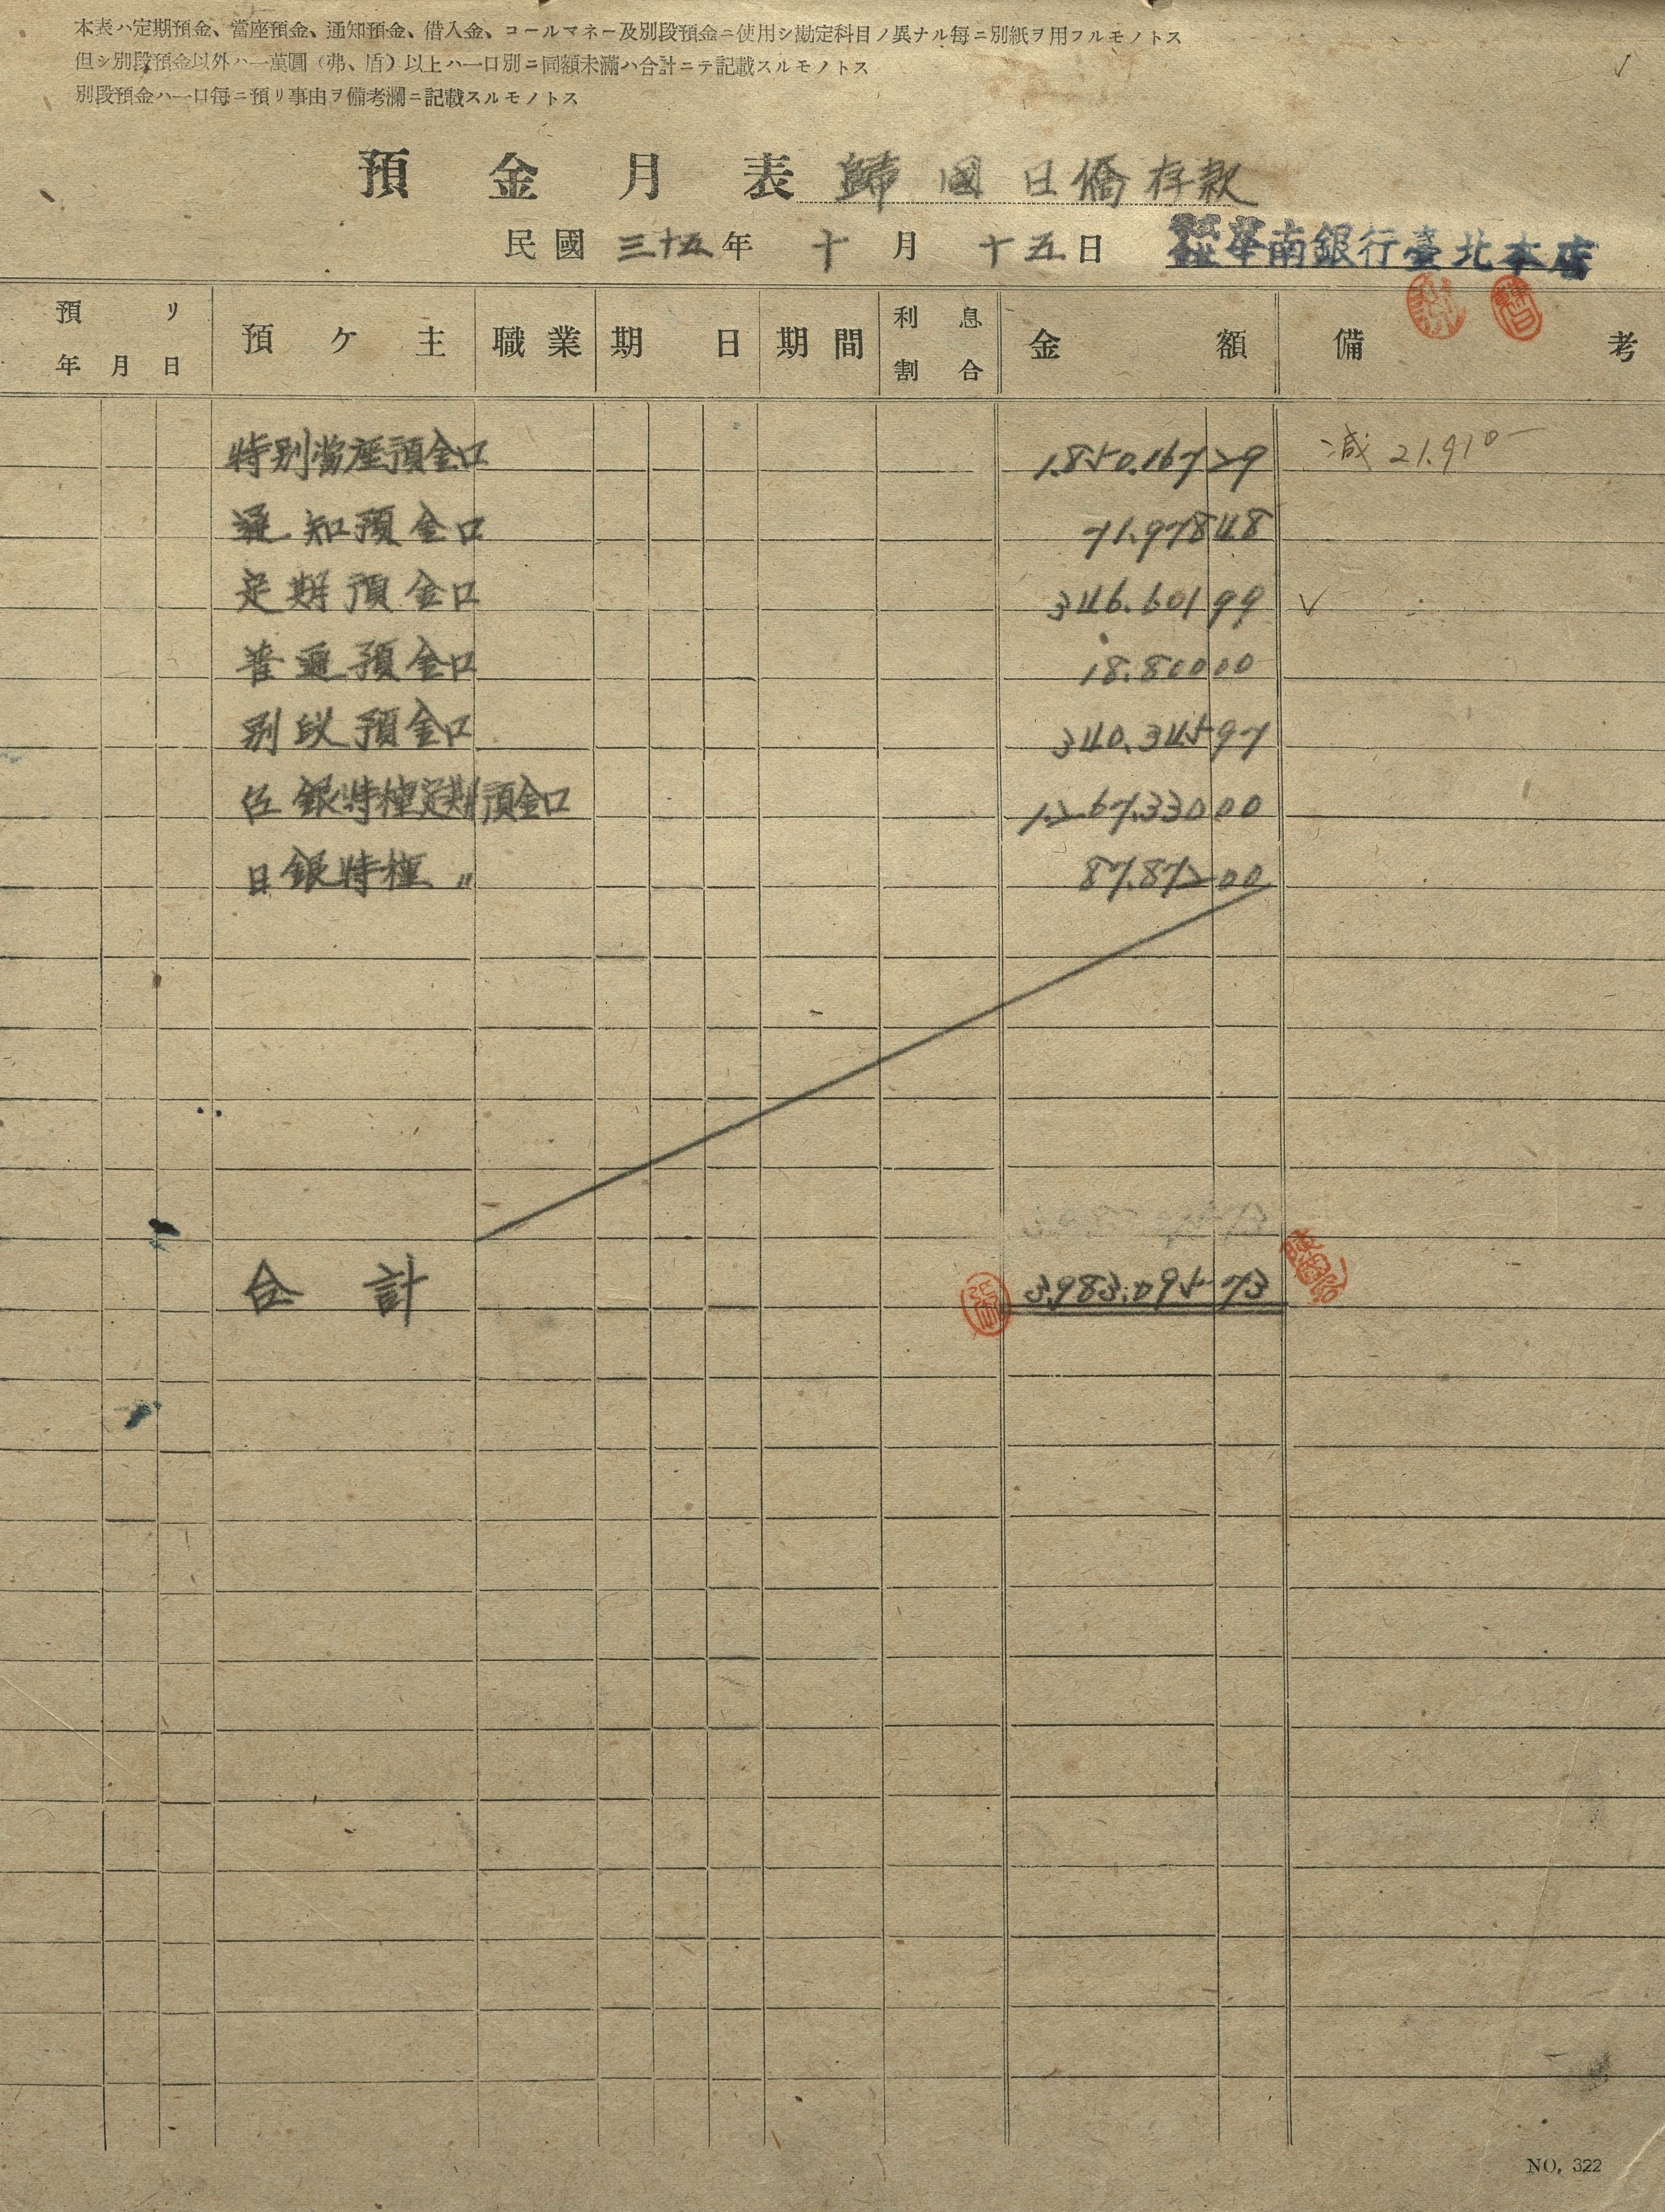 本表ハ定期預金、當座預金、通知預金、借入金、コールマネー及別段預金ニ使用シ勘定科目ノ異ナル每ニ別紙ヲ用フルモノトス
但シ別段預金以外ハ一萬圓(弗、盾)以上ハ一口別ニ同額未滿ハ合計ニテ記載スルモノトス
別段預金ハ一口每ニ預リ事由ヲ備考欄ニ記載スルモノトス
預金月表 歸國日僑存款
民國三十五年十月十五日 華南銀行臺北本店
預リ年月日 預ケ主 職業 期日 期間 利息割合 金額 備考
特別當座預金口 1.850.167 29 減 21.910-
通知預金口 71.978 48
定期預金口 346.601 99 ✓
普通預金口 18.800 00
別段預金口 340.345 97
銀特種定期預金口 1.267.330 00
日銀特種 〃 87.872 00
合計 3.983.095 73
NO. 322